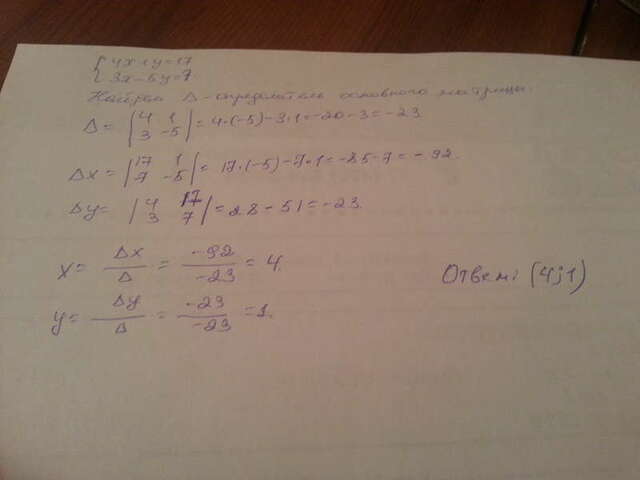 { 4x+y=17
3x-5y=7
Найдем Δ-определитель основного матрицы.
Δ= |4 1 3 -5| = 4·(-5)-3·1=-20-3=-23
Δx = |17 1 7 -5| = 17·(-5)-7·1=-85-7=-92.
Δy= |4 17 3 7| = 28-51=-23.
x= Δx/Δ = -92/-23 = 4.
Ответ: (4;1)
y= Δy/Δ = -23/-23 =1.